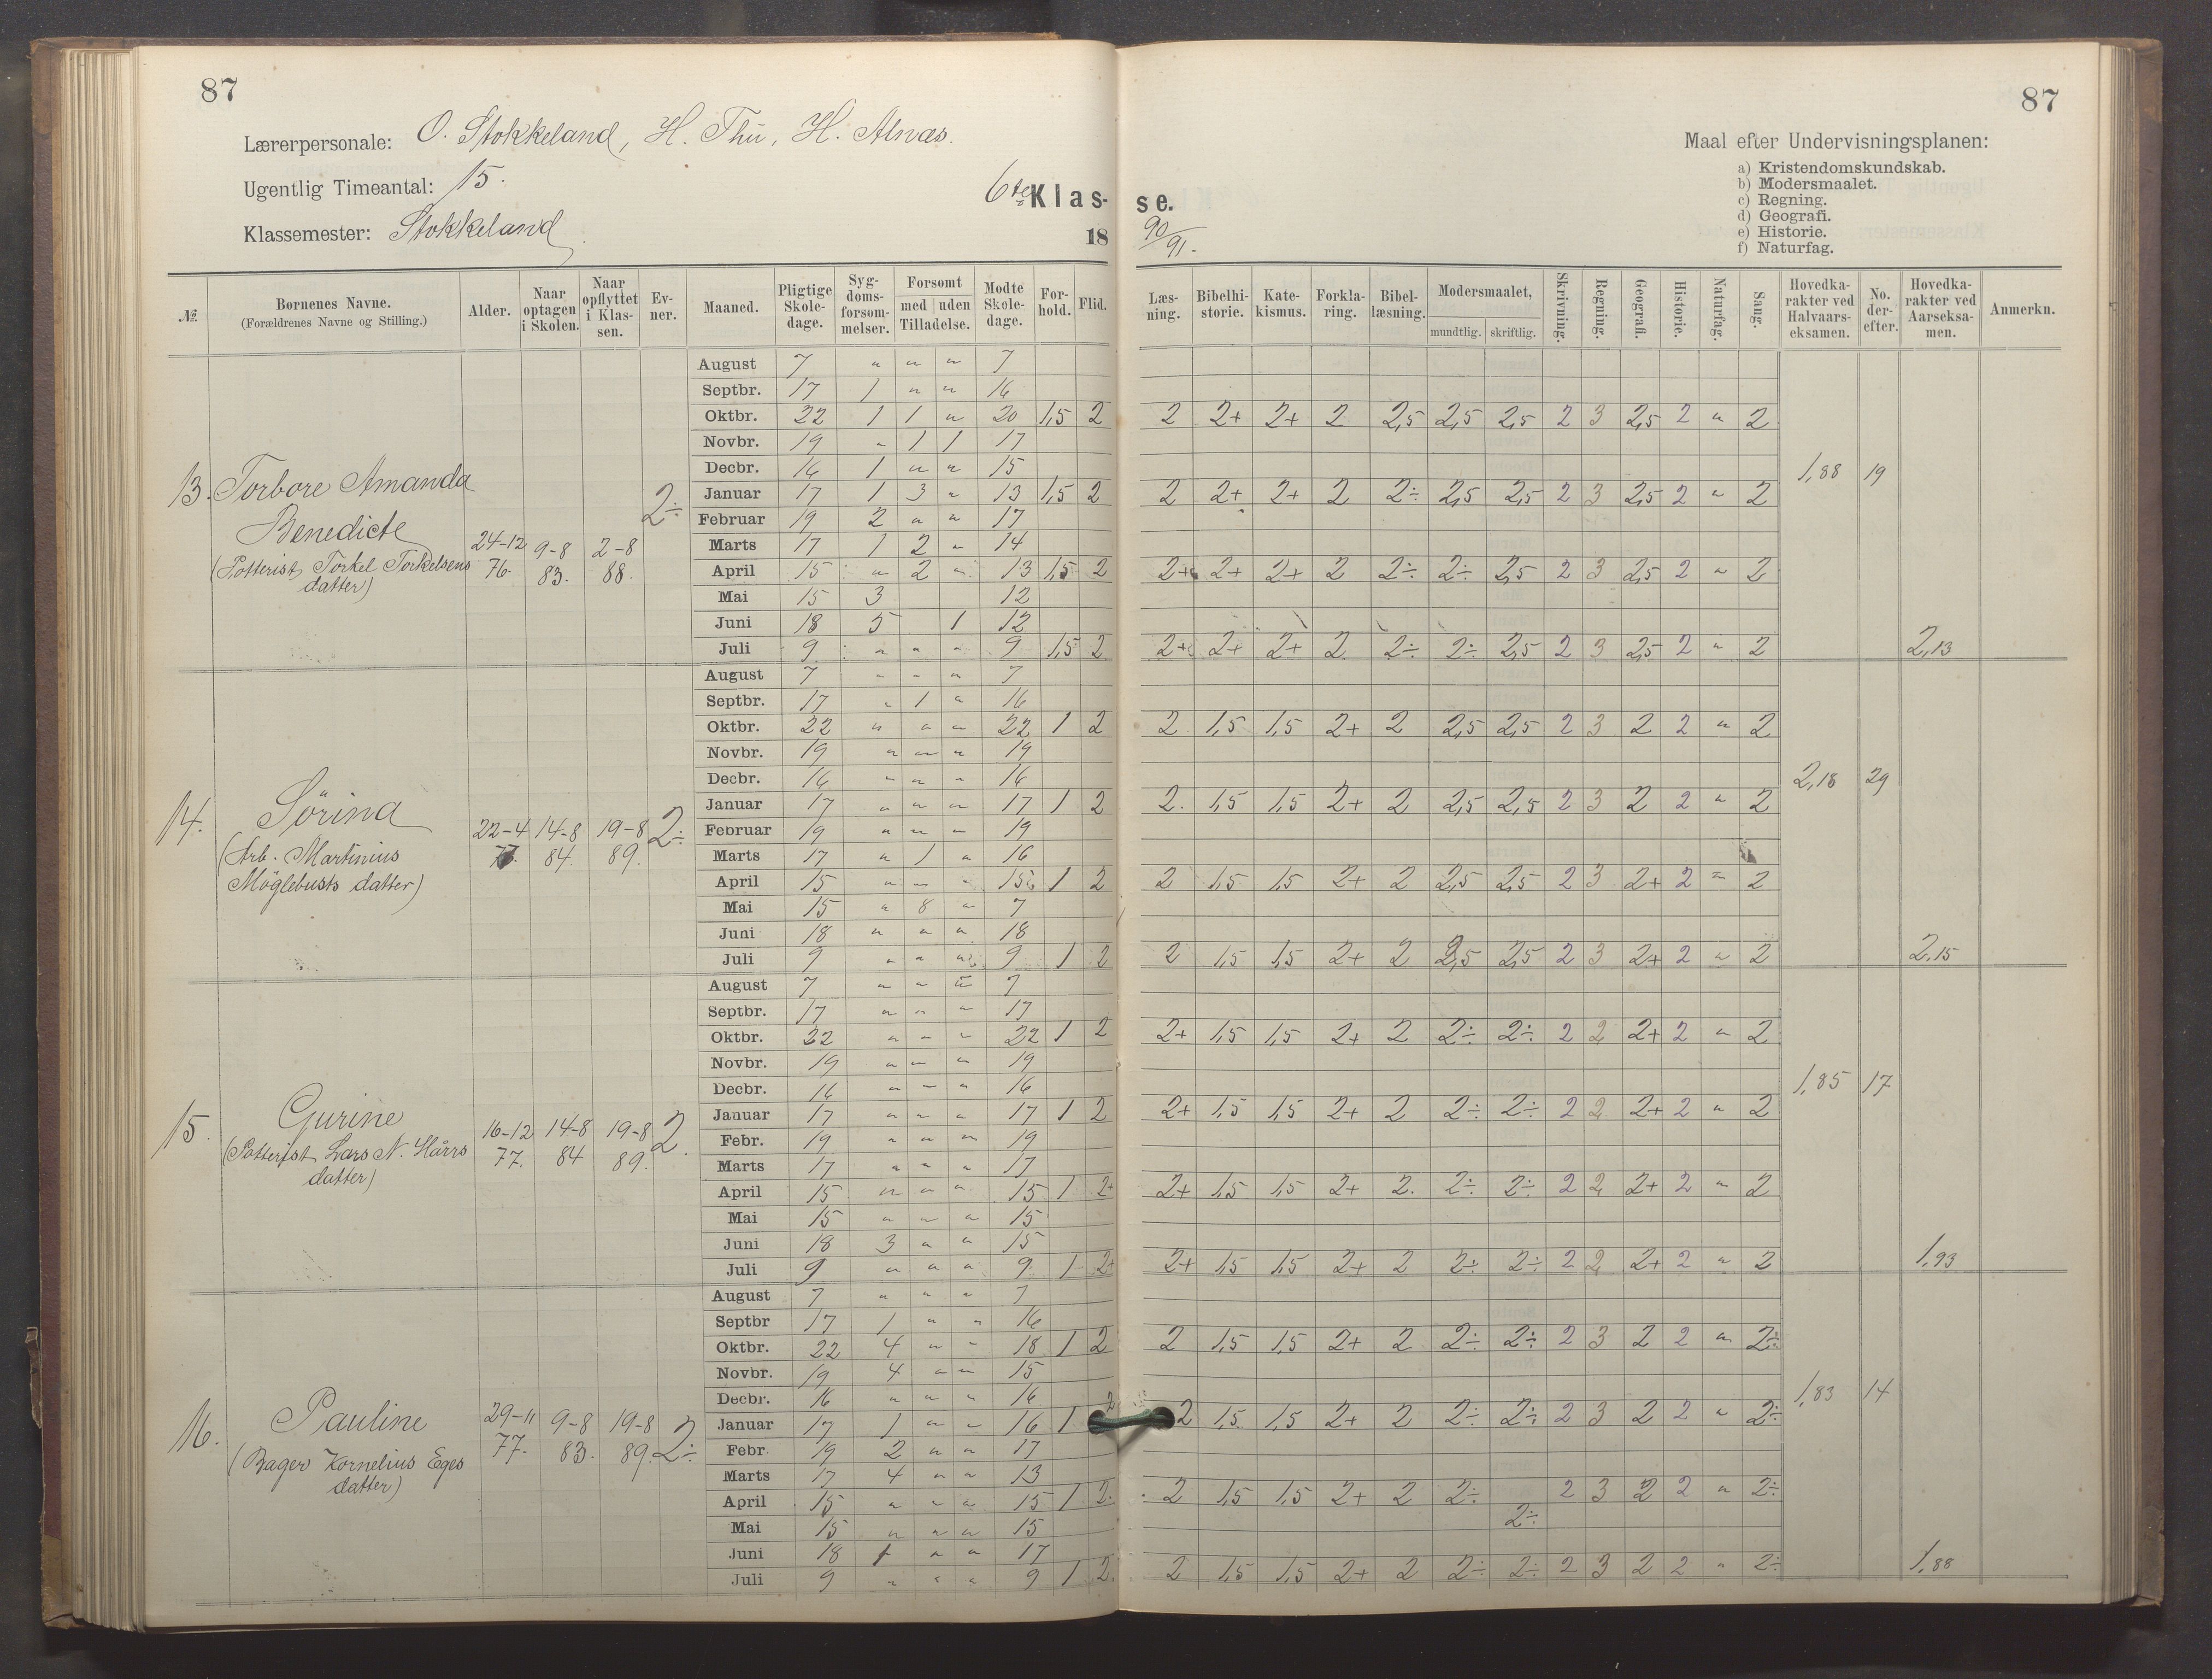 87
87
Lærerpersonale: O. Stokkeland, H. Thu, H. Alnæs.
Ugentlig Timeantal: 15.
Klassemester: Stokkeland
6te Klas- se.
18 90/91.
Maal efter Undervisningsplanen:
a) Kristendomskundskab.
b) Modersmaalet.
c) Regning.
d) Geografi.
e) Historie.
f) Naturfag.
№. Børnenes Navne. (Forældrenes Navne og Stilling.) Alder. Naar optagen i Skolen. Naar opflyttet i Klassen. Evner. Maaned. Pligtige Skoledage. Sygdomsforsømmelser. Forsømt med uden Tilladelse. Mødte Skoledage. Forhold. Flid. Læsning. Bibelhistorie. Katekismus. Forklaring. Bibellæsning. Modersmaalet, mundtlig. skriftlig. Skrivning. Regning. Geografi. Historie. Naturfag. Sang. Hovedkarakter ved Halvaarseksamen. No. derefter. Hovedkarakter ved Aarseksamen. Anmerkn.
13. Torbore Amanda
Benedicte
(Potterist Torkel Torkelsens
datter)
24-12 76. 9-8 83. 2-8 88. 2÷
August 7 " " " 7
Septbr. 17 1 " " 16
Oktbr. 22 1 1 " 20 1,5 2 2 2+ 2+ 2 2,5 2,5 2,5 2 3 2,5 2 " 2
Novbr. 19 " 1 1 17
Decbr. 16 1 " " 15
1,88 19
Januar 17 1 3 " 13 1,5 2 2 2+ 2+ 2 2÷ 2,5 2,5 2 3 2,5 2 " 2
Februar 19 2 " " 17
Marts 17 1 2 " 14
April 15 " 2 " 13 1,5 2 2+ 2+ 2+ 2 2÷ 2÷ 2,5 2 3 2,5 2 " 2
Mai 15 3 12
Juni 18 5 1 12
Juli 9 " " " 9 1,5 2 2+ 2+ 2+ 2 2÷ 2÷ 2,5 2 3 2,5 2 " 2 2,13
14. Sörina
(Arb. Martinius
Möglebusts datter)
22-4 77. 14-8 84. 19-8 89. 2÷
August 7 " " " 7
Septbr. 17 " 1 " 16
Oktbr. 22 " " " 22 1 2 2 1,5 1,5 2+ 2 2,5 2,5 2 3 2 2 " 2
Novbr. 19 " " " 19
Decbr. 16 " " " 16
2,18 29
Januar 17 " " " 17 1 2 2. 1,5 1,5 2+ 2 2,5 2,5 2 3 2 2 " 2
Februar 19 " " " 19
Marts 17 " 1 " 16
April 15 " " " 15 1 2 2 1,5 1,5 2+ 2 2,5 2,5 2 3 2+ 2 " 2
Mai 15 " 8 " 7
Juni 18 " " " 18
Juli 9 " " " 9 1 2 2 1,5 1,5 2+ 2 2,5 2,5 2 3 2+ 2 " 2 2,15
15. Gurine
(Potterist Lars N. Hårrs
datter)
16-12 77. 14-8 84 19-8 89. 2.
August 7 " " " 7
Septbr. 17 " " " 17
Oktbr. 22 " " " 22 1 2 2+ 1,5 1,5 2+ 2 2÷ 2÷ 2 2 2+ 2 " 2
Novbr. 19 " " " 19
Decbr. 16 " " " 16
1,85 17
Januar 17 " " " 17 1 2 2+ 1,5 1,5 2+ 2 2÷ 2÷ 2 2 2+ 2 " 2
Febr. 19 " " " 19
Marts 17 " " " 17
April 15 " " " 15 1 2+ 2+ 1,5 1,5 2+ 2. 2÷ 2÷ 2 2 2+ 2 " 2
Mai 15 " " " 15
Juni 18 3 " " 15
Juli 9 " " " 9 1 2+ 2+ 1,5 1,5 2+ 2 2÷ 2÷ 2 2 2+ 2 " 2 1,93
16. Pauline
(Bager Kornelius Eges
datter)
29-11 77. 9-8 83. 19-8 89. 2÷
August 7 " " " 7
Septbr 17 1 " " 16
Oktbr. 22 4 " " 18 1 2 2 1,5 1,5 2+ 2 2÷ 2÷ 2 3 2 2 " 2÷
Novbr. 19 4 " " 15
Decbr. 16 " " " 16
1,83 14
Januar 17 1 " " 16 1 2 2 1,5 1,5 2+ 2 2÷ 2÷ 2 3 2 2 " 2÷
Febr. 19 2 " " 17
Marts 17 4 " " 13
April 15 " " " 15 1 2. 2 1,5 1,5 2+ 2 2÷ 2÷ 2 3 2 2 " 2÷
Mai 15 " " " 15
Juni 18 1 " " 17
Juli 9 " " " 9 1 2. 2 1,5 1,5 2+ 2 2÷ 2÷ 2 3 2 2 " 2÷ 1,88